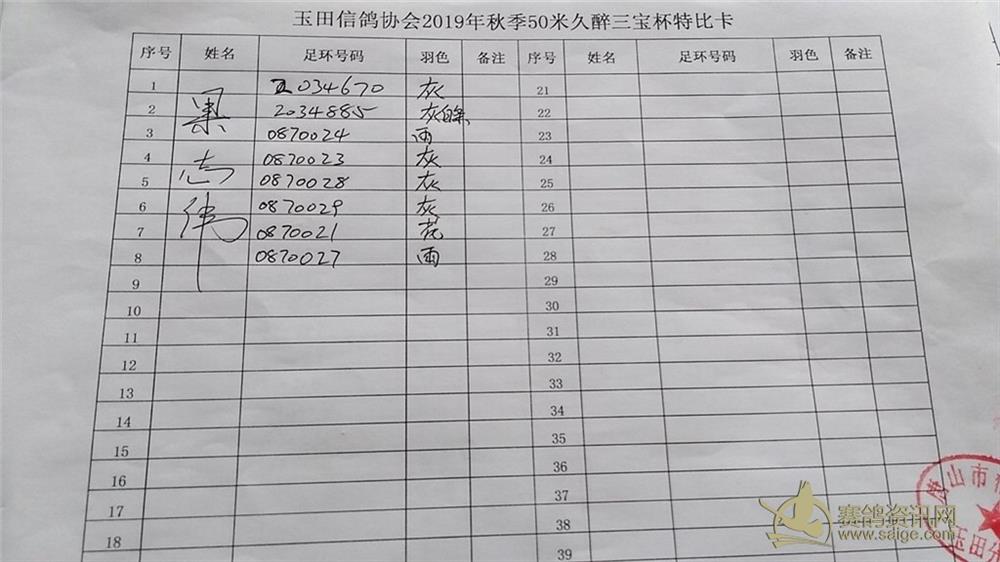 玉田信鸽协会2019年秋季50米久醉三宝杯特比卡
序号 姓名 足环号码 羽色 备注 序号 姓名 足环号码 羽色 备注
1 梁志伟 2034670 灰 21
2 2034885 灰白条 22
3 0870024 雨 23
4 0870023 灰 24
5 0870028 灰 25
6 0870029 灰 26
7 0870021 花 27
8 0870027 雨 28
9 29
10 30
11 31
12 32
13 33
14 34
15 35
16 36
17 37
18 38
39
唐山市信
玉田分
赛鸽资讯网
www.saige.com